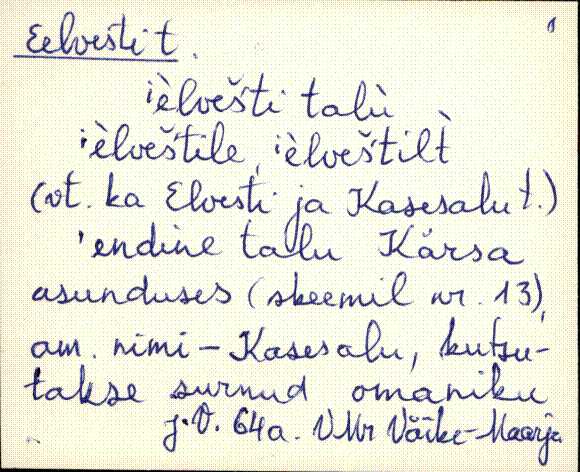 Eelvesti t.
ièlvešti talù
ièlveštile, ièlveštilt̀
(vt. ka Elvesti ja Kasesalu t.)
'endine talu Kärsa
asunduses (skeemil nr. 13),
am. nimi – Kasesalu, kutsu-
takse surnud omaniku
j. V. 64a. VMr Väike-Maarja